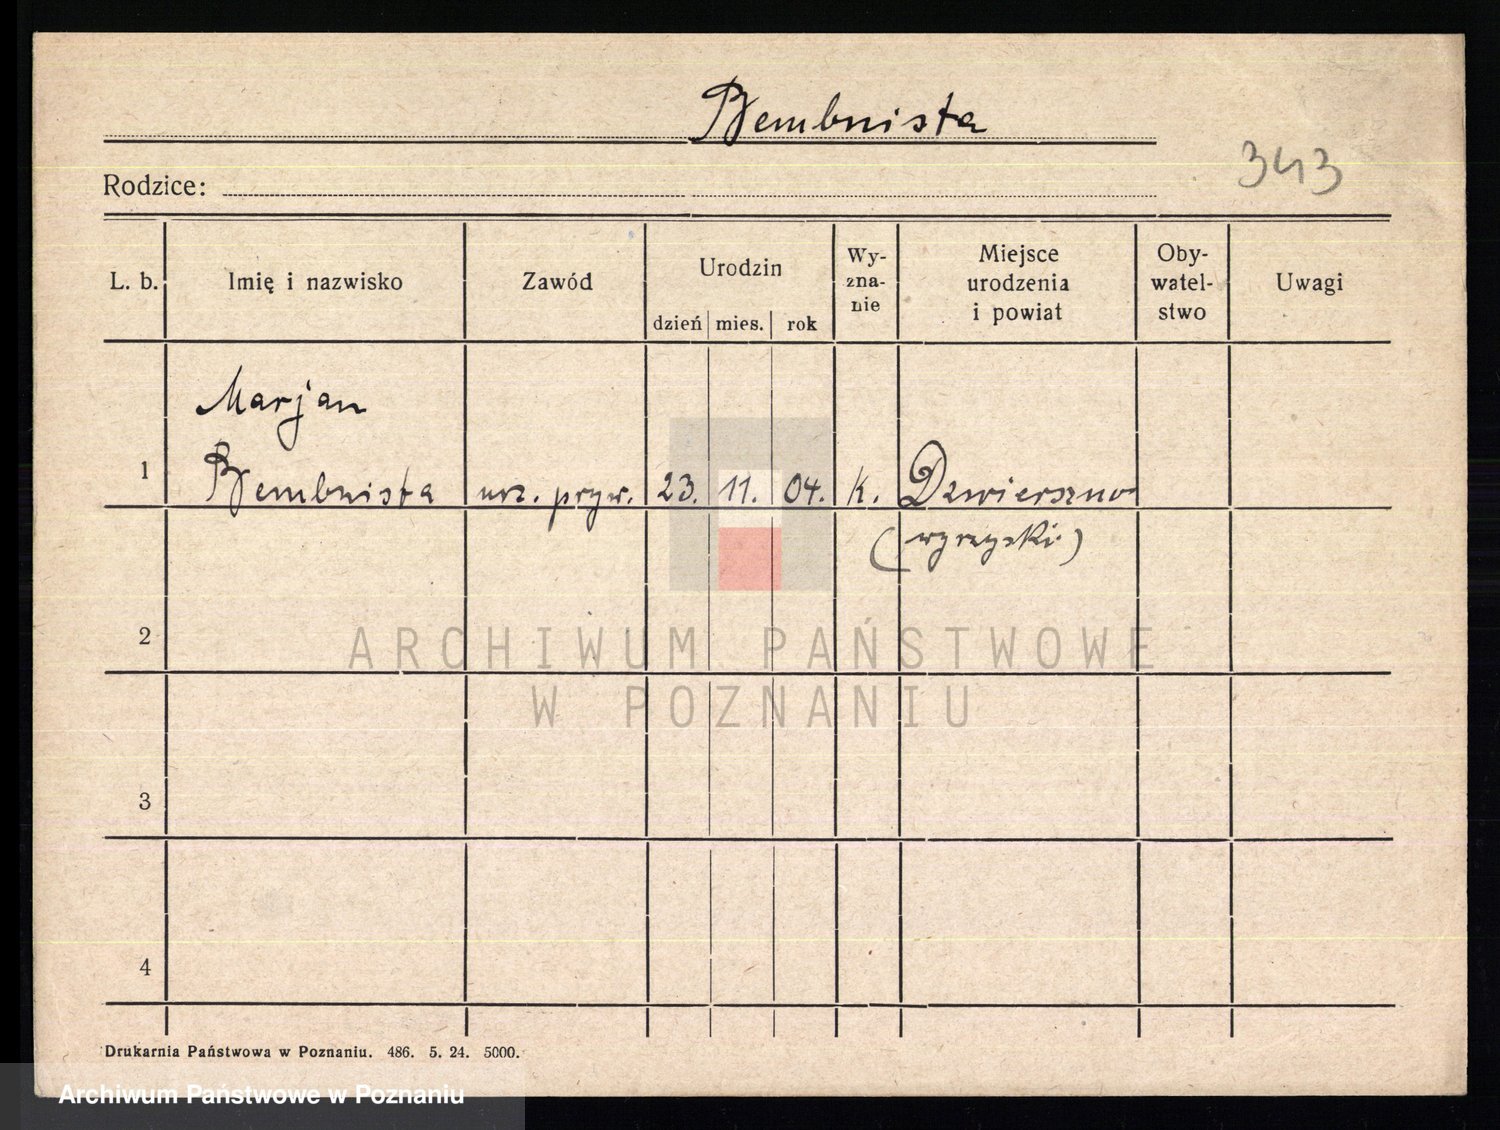 Bembnista
343
Rodzice:
L. b. Imię i nazwisko Zawód Urodzin dzień mies. rok Wy-zna-nie Miejsce urodzenia i powiat Oby-watel-stwo Uwagi
Marjan
1 Bembnista urz. pryw. 23. 11. 04. k. Dzwierszno
(wyrzyski)
2
ARCHIWUM PAŃSTWOWE
W POZNANIU
3
4
Drukarnia Państwowa w Poznaniu. 486. 5. 24. 5000.
Archiwum Państwowe w Poznaniu